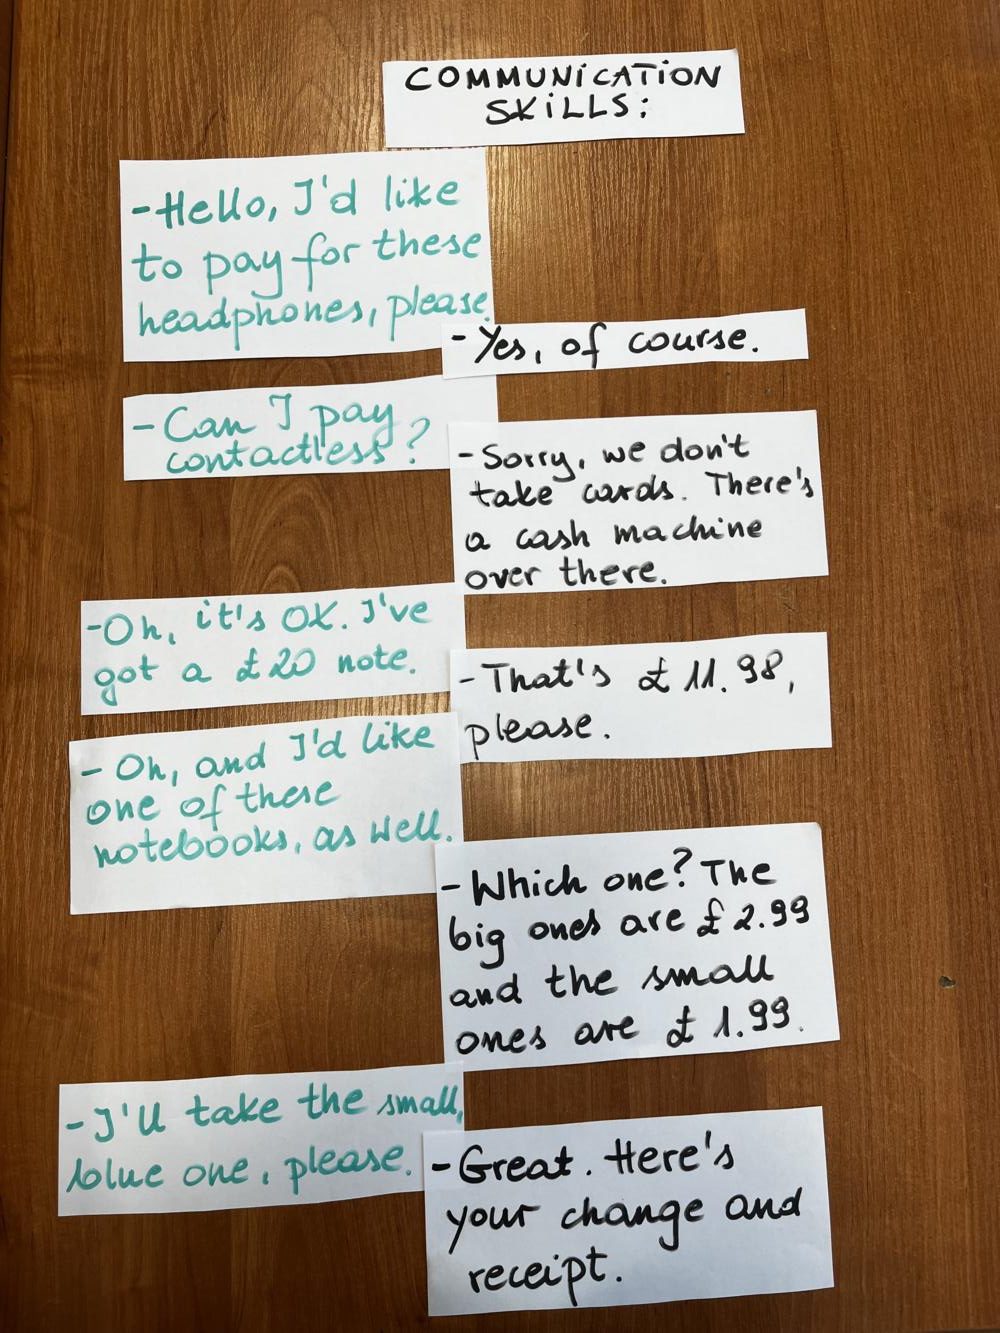 COMMUNiCATiON
SKiLLS:
-Hello, I'd like
to pay for these
headphones, please.
- Yes, of course.
- Can I pay
contactless?
- Sorry, we don't
take cards. There's
a cash machine
over there.
-Oh, it's OK. I've
got a £20 note.
- That's £11.98,
please.
- Oh, and I'd like
one of these
notebooks, as well.
- Which one? The
big ones are £2.99
and the small
ones are £1.99.
- I'll take the small,
blue one, please.
- Great. Here's
your change and
receipt.